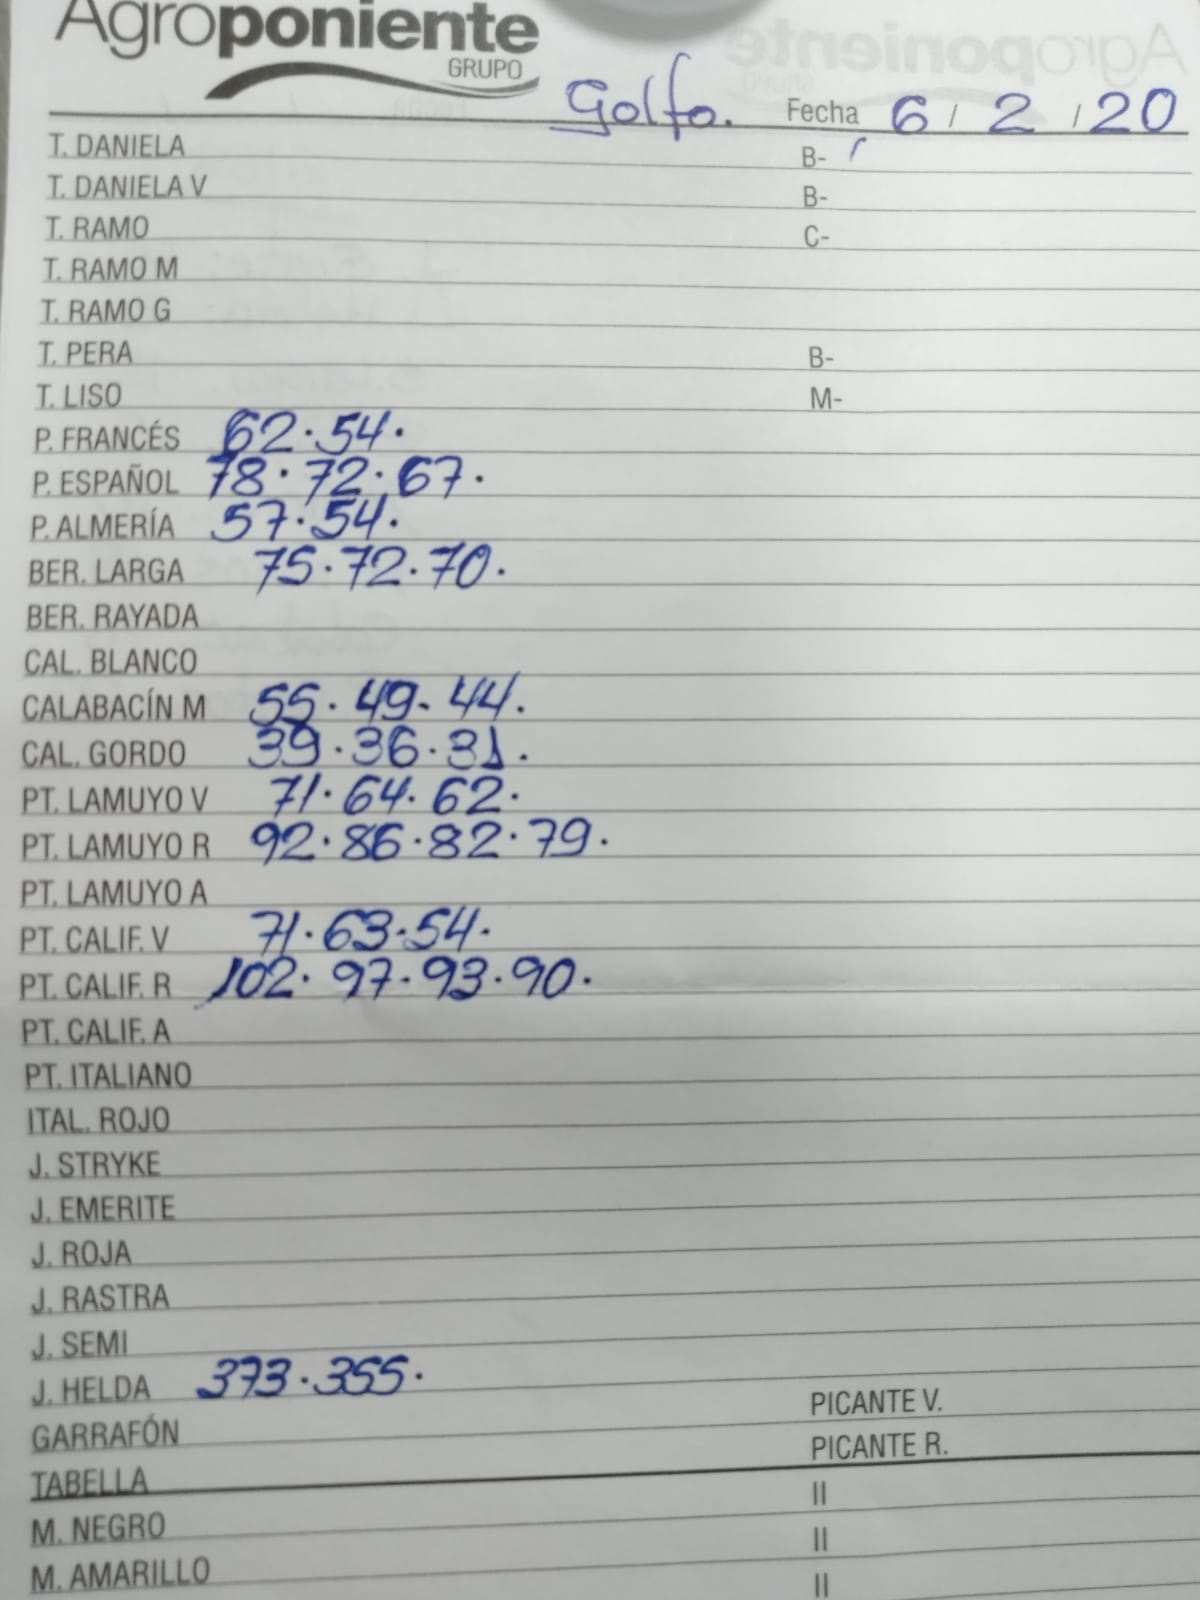 Agroponiente
GRUPO
Golfo. Fecha 6 / 2 / 20
T. DANIELA B-
T. DANIELA V B-
T. RAMO C-
T. RAMO M
T. RAMO G
T. PERA B-
T. LISO M-
P. FRANCÉS 62.54.
P. ESPAÑOL 78.72.67.
P. ALMERÍA 57.54.
BER. LARGA 75.72.70.
BER. RAYADA
CAL. BLANCO
CALABACÍN M 55.49.44.
CAL. GORDO 39.36.31.
PT. LAMUYO V 71.64.62.
PT. LAMUYO R 92.86.82.79.
PT. LAMUYO A
PT. CALIF. V 71.63.54.
PT. CALIF. R 102.97.93.90.
PT. CALIF. A
PT. ITALIANO
ITAL. ROJO
J. STRYKE
J. EMERITE
J. ROJA
J. RASTRA
J. SEMI
J. HELDA 373.355.
GARRAFÓN PICANTE V.
TABELLA PICANTE R.
M. NEGRO II
M. AMARILLO II
II